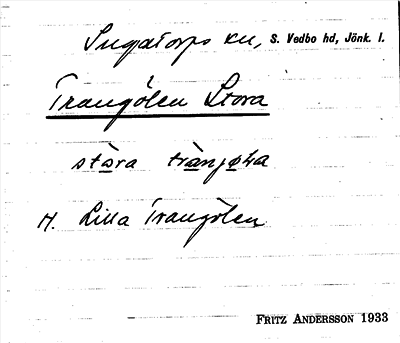 Ingatorps ku, S. Vedbo hd, Jönk. l.
Trangölen Stora
stòra tràŋjøḷa
H. Lilla Trangölen
FRITZ ANDERSSON 1933